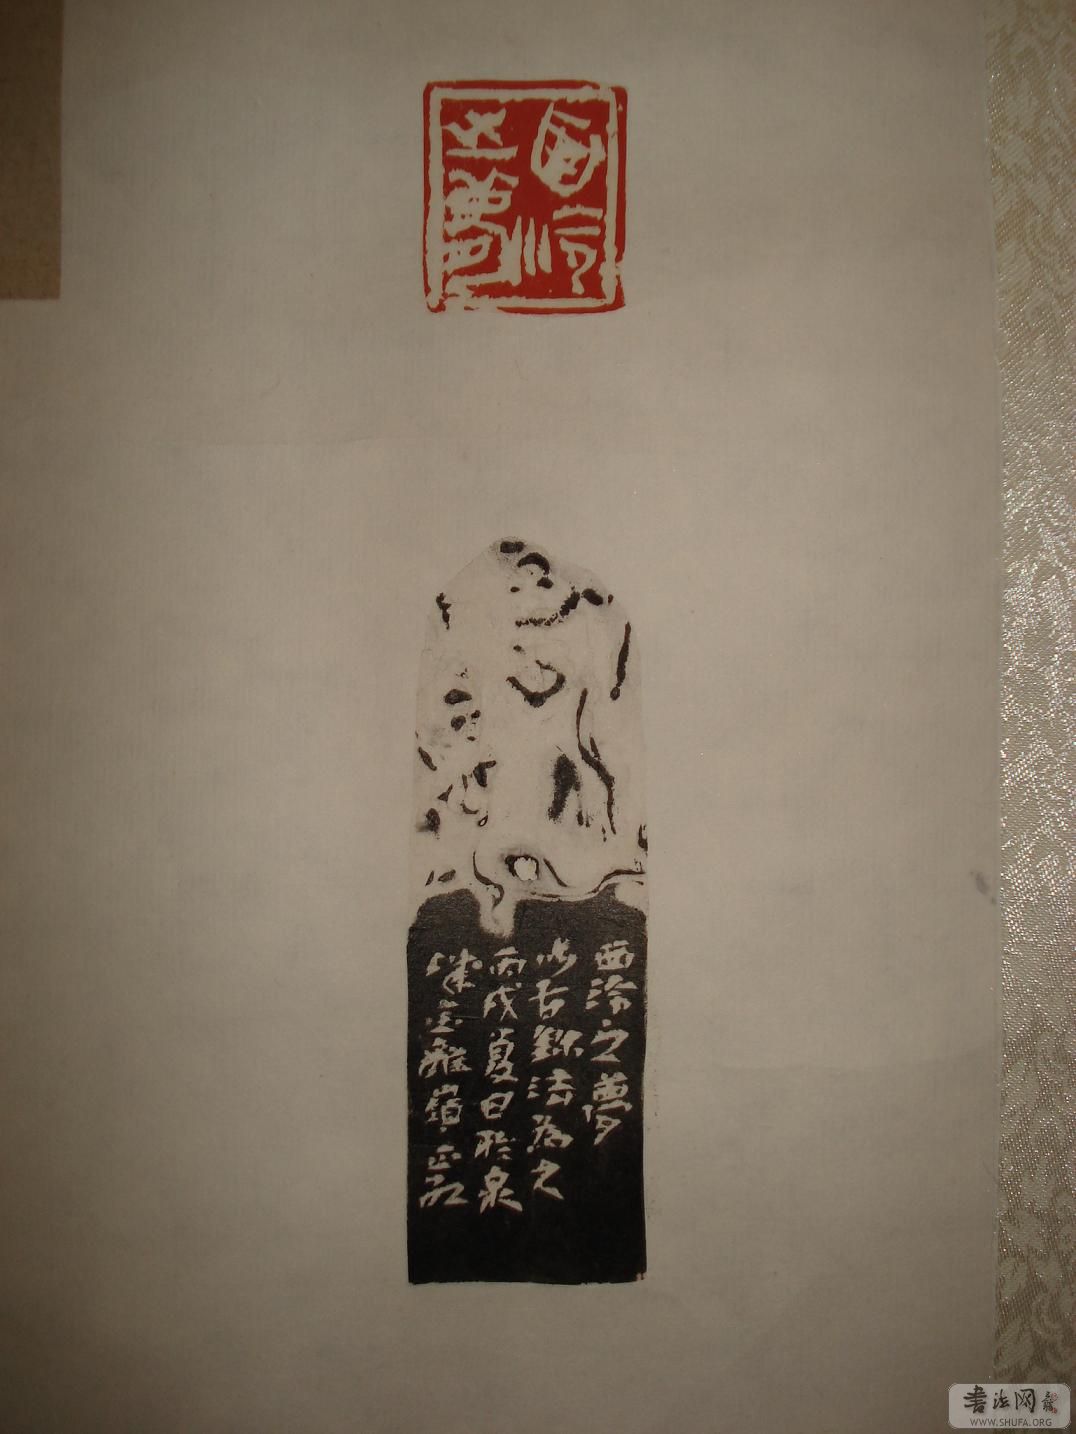 西泠之夢
西泠之夢
以古鉥法為之
丙戌夏日於泉
城金雞嶺
書法网
WWW.SHUFA.ORG